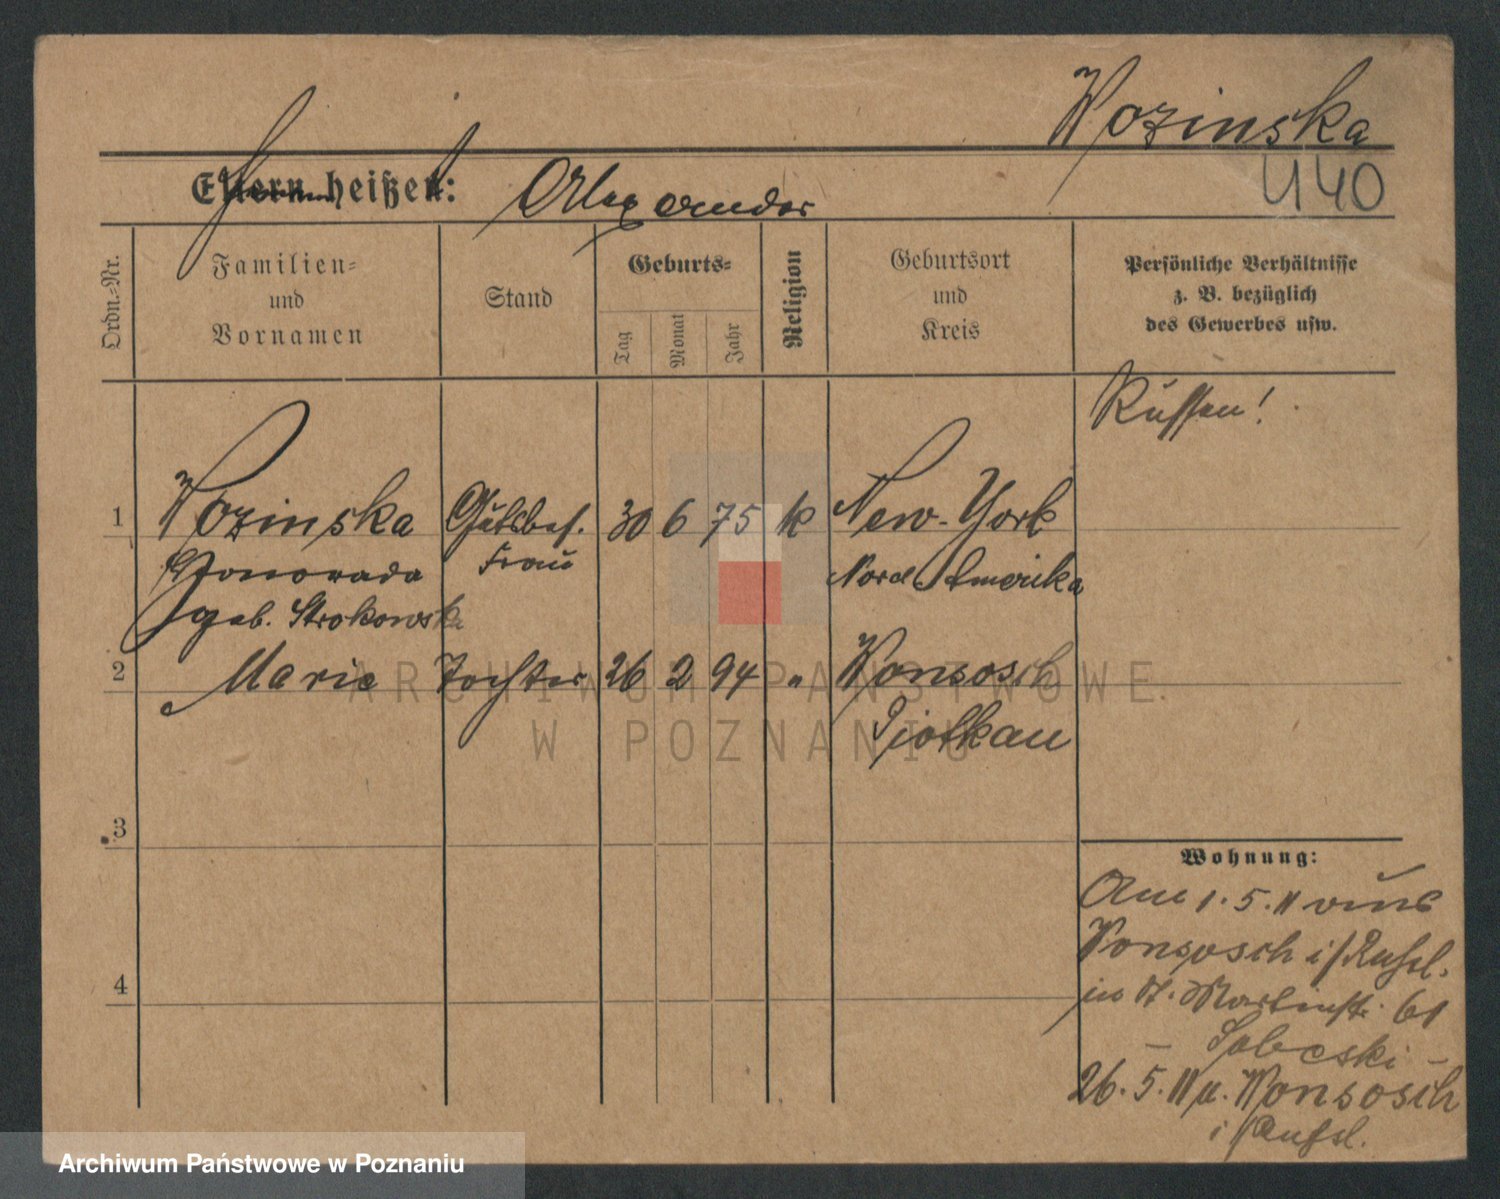 Wozinska
Eltern heißen: Alexander
440
Ordn.=Nr.
Familien=
und
Vornamen
Stand
Geburts=
Tag
Monat
Jahr
Religion
Geburtsort
und
Kreis
Persönliche Verhältnisse
z. B. bezüglich
des Gewerbes usw.
Russen!
1 Wozinska Gutsbes. 30 6 75 k New-York
Honorada Frau Nord Amerika
geb. Strokowska
2 Marie Tochter 26 2 94 " Wonsosch
Piotkau
3
4
Wohnung:
Am 1.5.11 aus
Wonsosch i/Rußl.
in St. Martinstr. 61
26.5.11 n. Wonsosch
i/Rußl.
ARCHIWUM PAŃSTWOWE
W POZNANIU
Archiwum Państwowe w Poznaniu